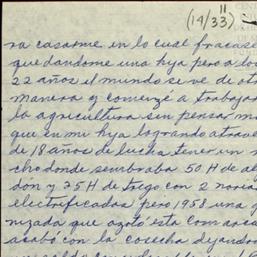 (14/33)
ra casarme en lo cual fracase
quedandome una hija pero a los
22 años el mundo se ve de otra
manera y comenzé a trabajar
la agricultura sin pensar m
que en mi hija logrando a trave
de 18 años de lucha tener un r
cho donde sembraba 50 H de al
dón y 25 H de trigo con 2 norias
electrificadas pero 1958 una g
nizada que azotó esta comarca
acabó con la cosecha dejando